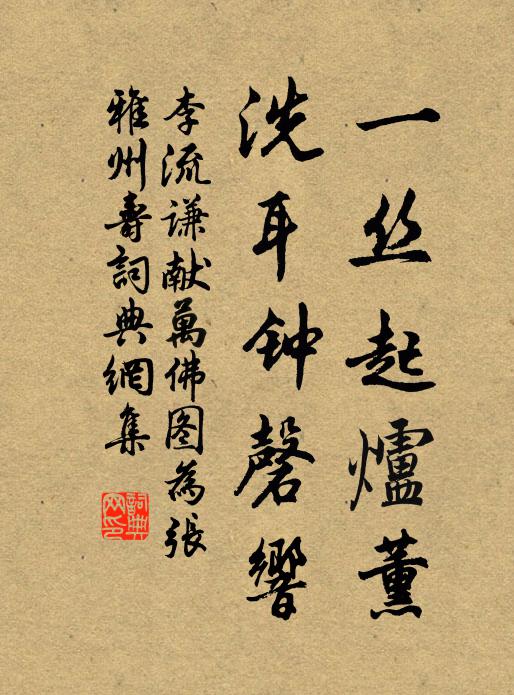 一丝起爐薰
洗耳钟磬響
李流谦献萬佛图為張
雅州壽詞典網集
詞典网印